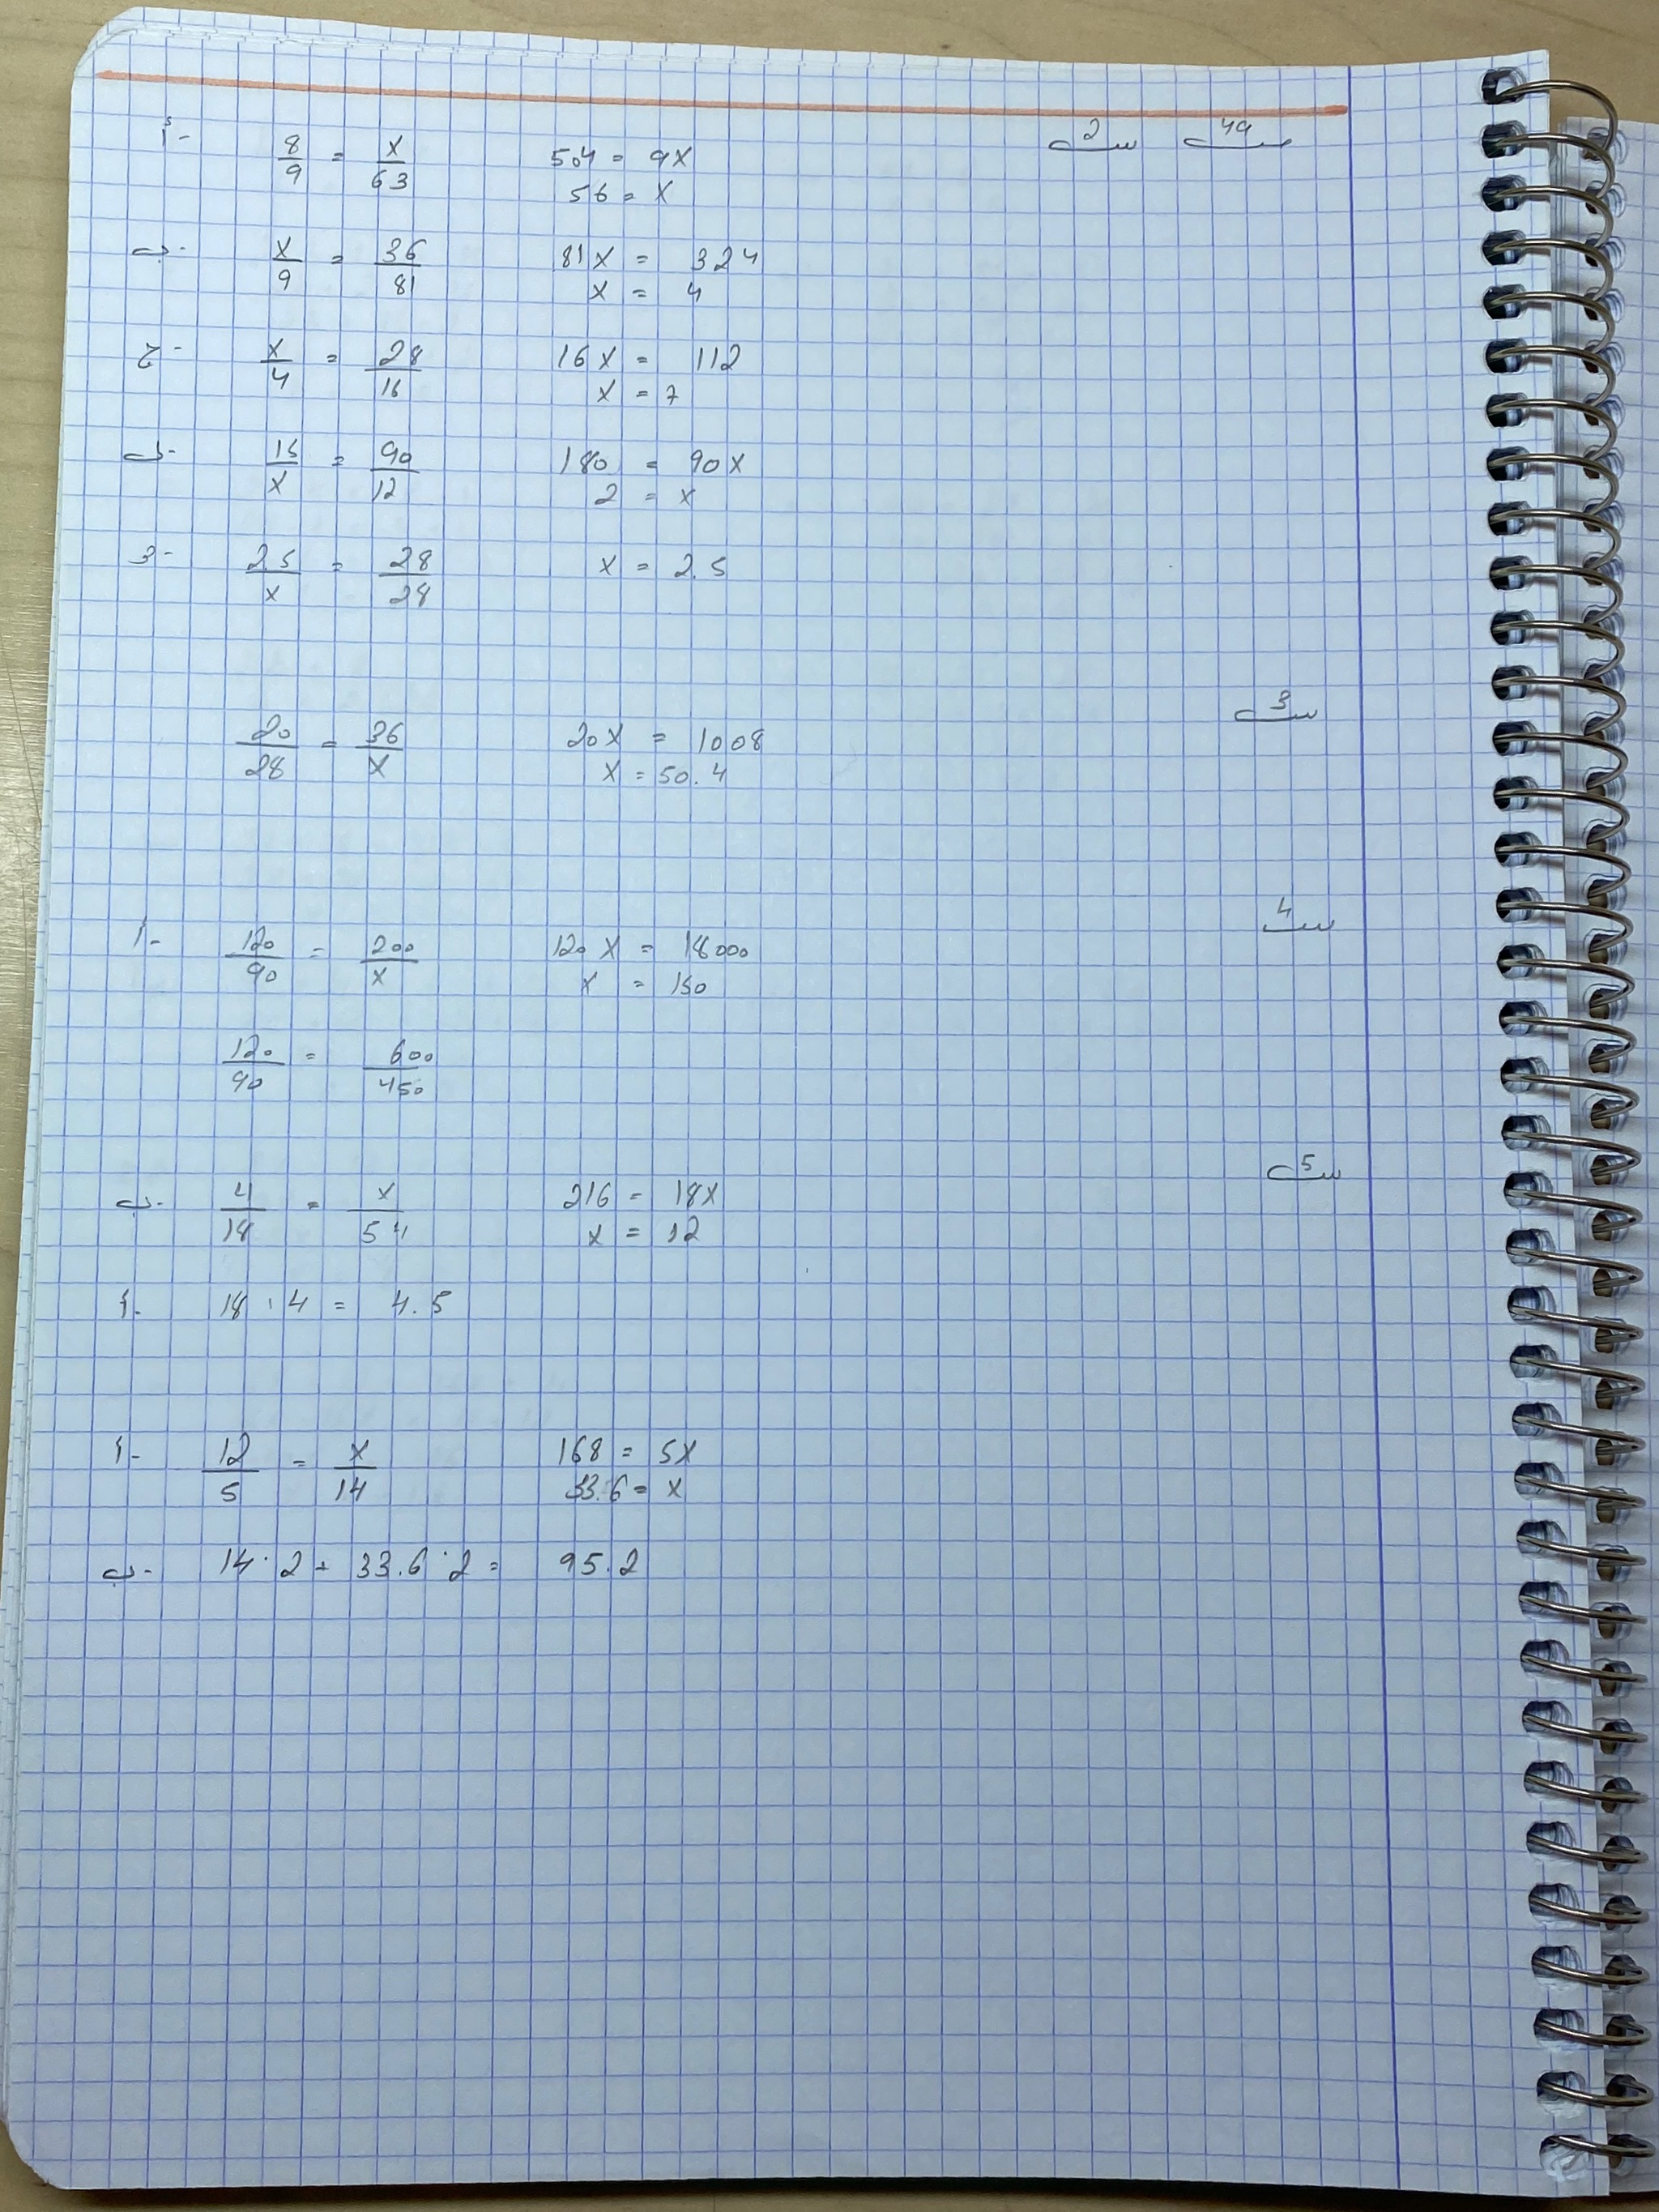 ص 49 س 2
أ- 8/9 = x/63 504 = 9x
56 = x
ب- x/9 = 36/81 81x = 324
x = 4
ج- x/4 = 28/16 16x = 112
x = 7
د- 15/x = 90/12 180 = 90x
2 = x
3- 2.5/x = 28/28 x = 2.5
س 3
20/28 = 36/x 20x = 1008
x = 50.4
س 4
أ- 120/90 = 200/x 120x = 18000
x = 150
120/90 = 600/450
س 5
ب- 4/18 = x/54 216 = 18x
x = 12
أ- 18 : 4 = 4.5
أ- 12/5 = x/14 168 = 5x
33.6 = x
ب- 14 · 2 + 33.6 · 2 = 95.2